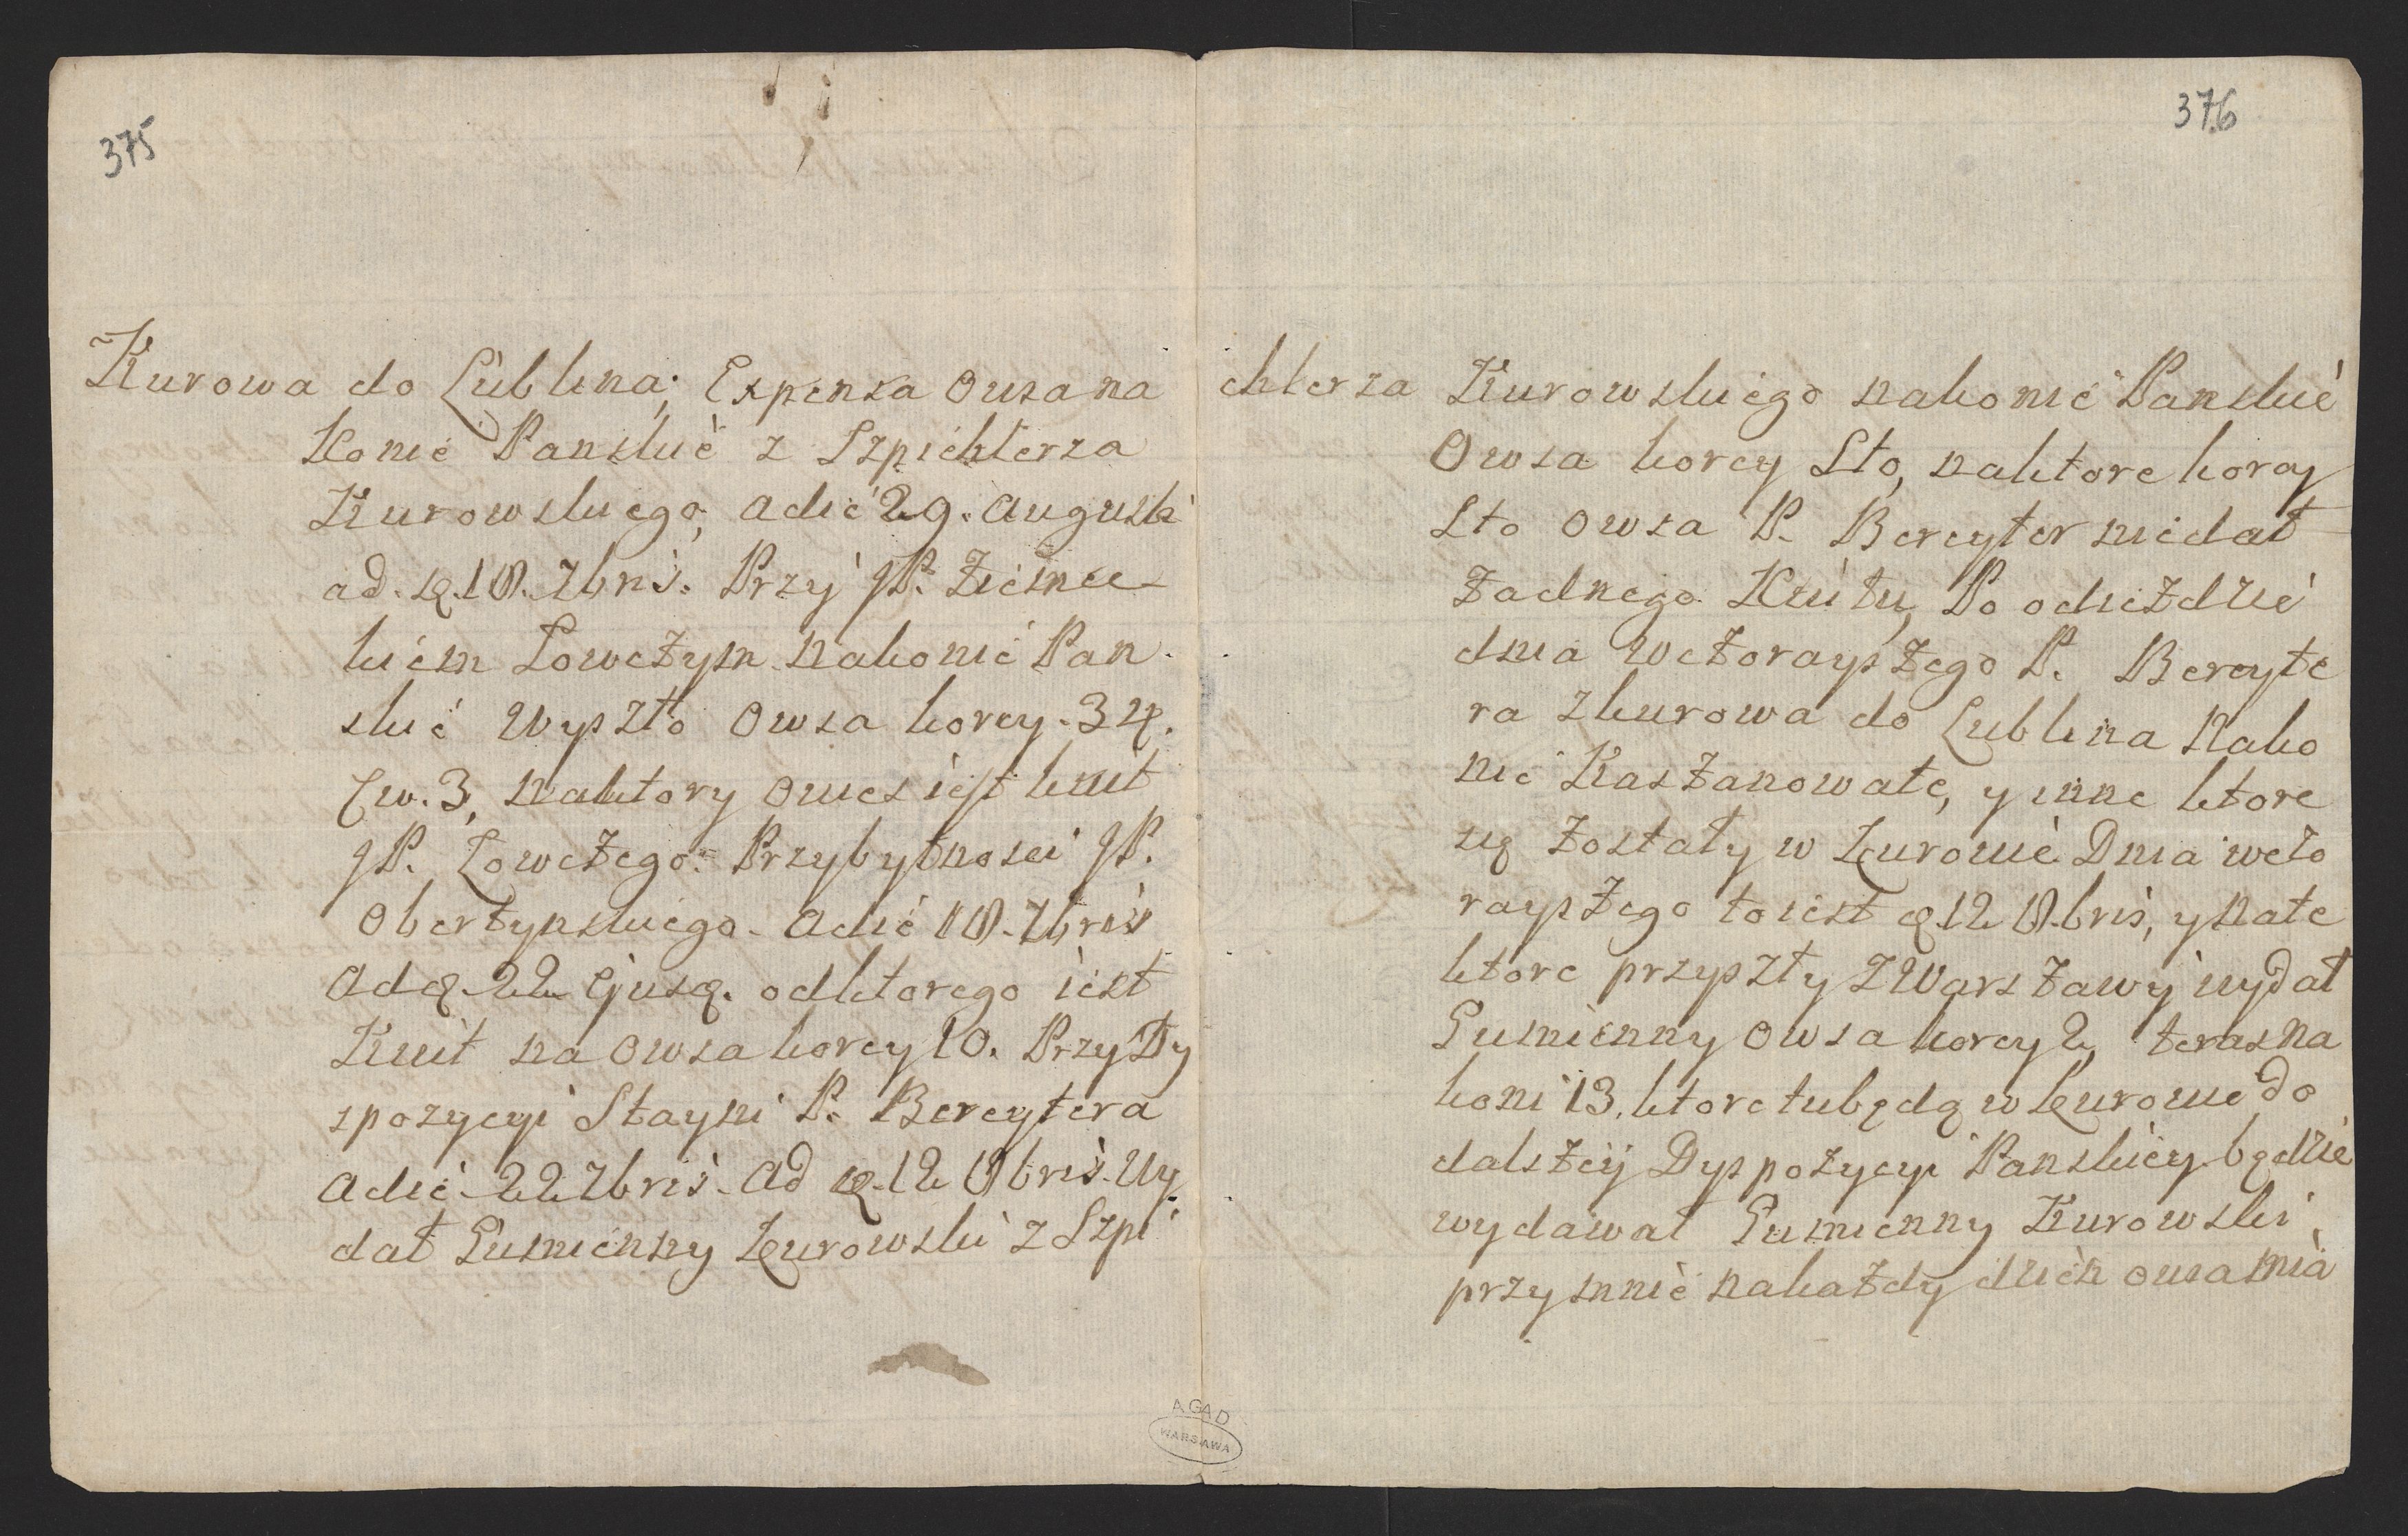 375
Kurowa do Lublina; Expensa Owsa na
Konie Panskie z Szpichlerza
Kurowskiego, a die 29. Augusti
ad. 18. 7bris. Przy JP.
kiem Lowczym na konie Pan-
skie wyszło Owsa korcy. 34.
Cw. 3, na ktory Owies iest kwit
JP. Lowczego. Przybytnosci JP.
Obertynskiego. a die 18. 7bris
ad 22 Ejusq. od ktorego iest
Kwit na Owsa korcy 10. Przy Dy
spozycyi Stayni P. Bereytera
a die 22 7bris. ad 12 8bris. Wy
dał Gumienny Kurowski z Szpi
376
chlerza Kurowskiego na konie Panskie
Owsa korcy Sto, na ktore korcy
Sto Owsa P. Bereyter nie dał
żadnego Kwitu, Po odieździe
dnia wczorayszego P. Bereyte
ra z kurowa do Lublina na ko
nie Kasztanowate, y inne ktore
się zostały w Kurowie Dnia wczo
rayszego to iest 12 8.bris, y na te
ktore przyszły z Warszawy wydał
Gumienny Owsa korcy 2, teras na
koni 13. ktore tu będą w kurowie do
dalszey Dyspozycyi Panskiey będzie
wydawał Gumienny Kurowski
przy mnie na każdy dzień owsa mia
AGAD
WARSZAWA